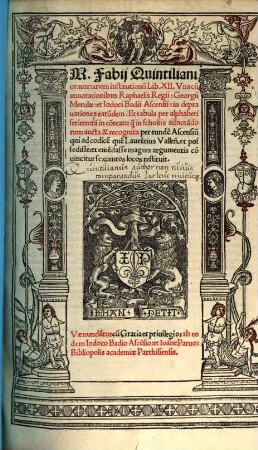 M. Fabij Quintiliani
oratoriarum institutionū Lib. XII. Vna cū
annotationibus Raphaelis Regij: Georgij
Merulæ et Iodoci Badii Ascensii in deprauationes
earūdem. Et tabula per alphabeti
seriem tā in cōtextu q̄ in scholiis adnotādo
rum aucta & recognita per eundē Ascensiū
qui ad codicē quē Laurētius Vallen̄. et possedisse
et emēdasse magnis argumentis cō
uincitur sexcentos locos restituit.
Quintilianus author non
comparandus
IEHAN PETIT
Væ nundātur cū Gratia et priuilegio: ab eo
dem Iodoco Badio Ascēsio: et Ioāne Paruo:
Bibliopolis academiæ Parrhisiensis.